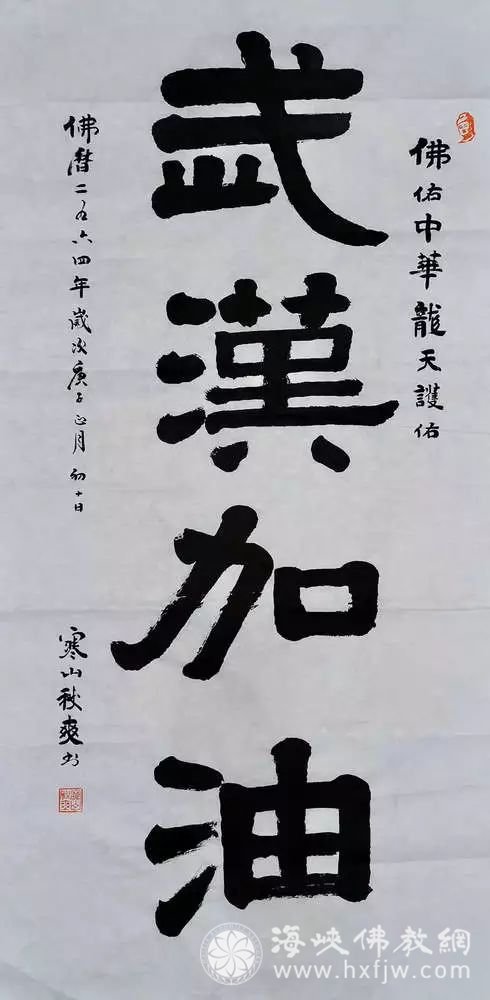 佛佑中華龍天護佑
武漢加油
佛曆二五六四年歲次庚子正月初十日
寒山秋爽书
海峡佛教網
www.hxfjw.com